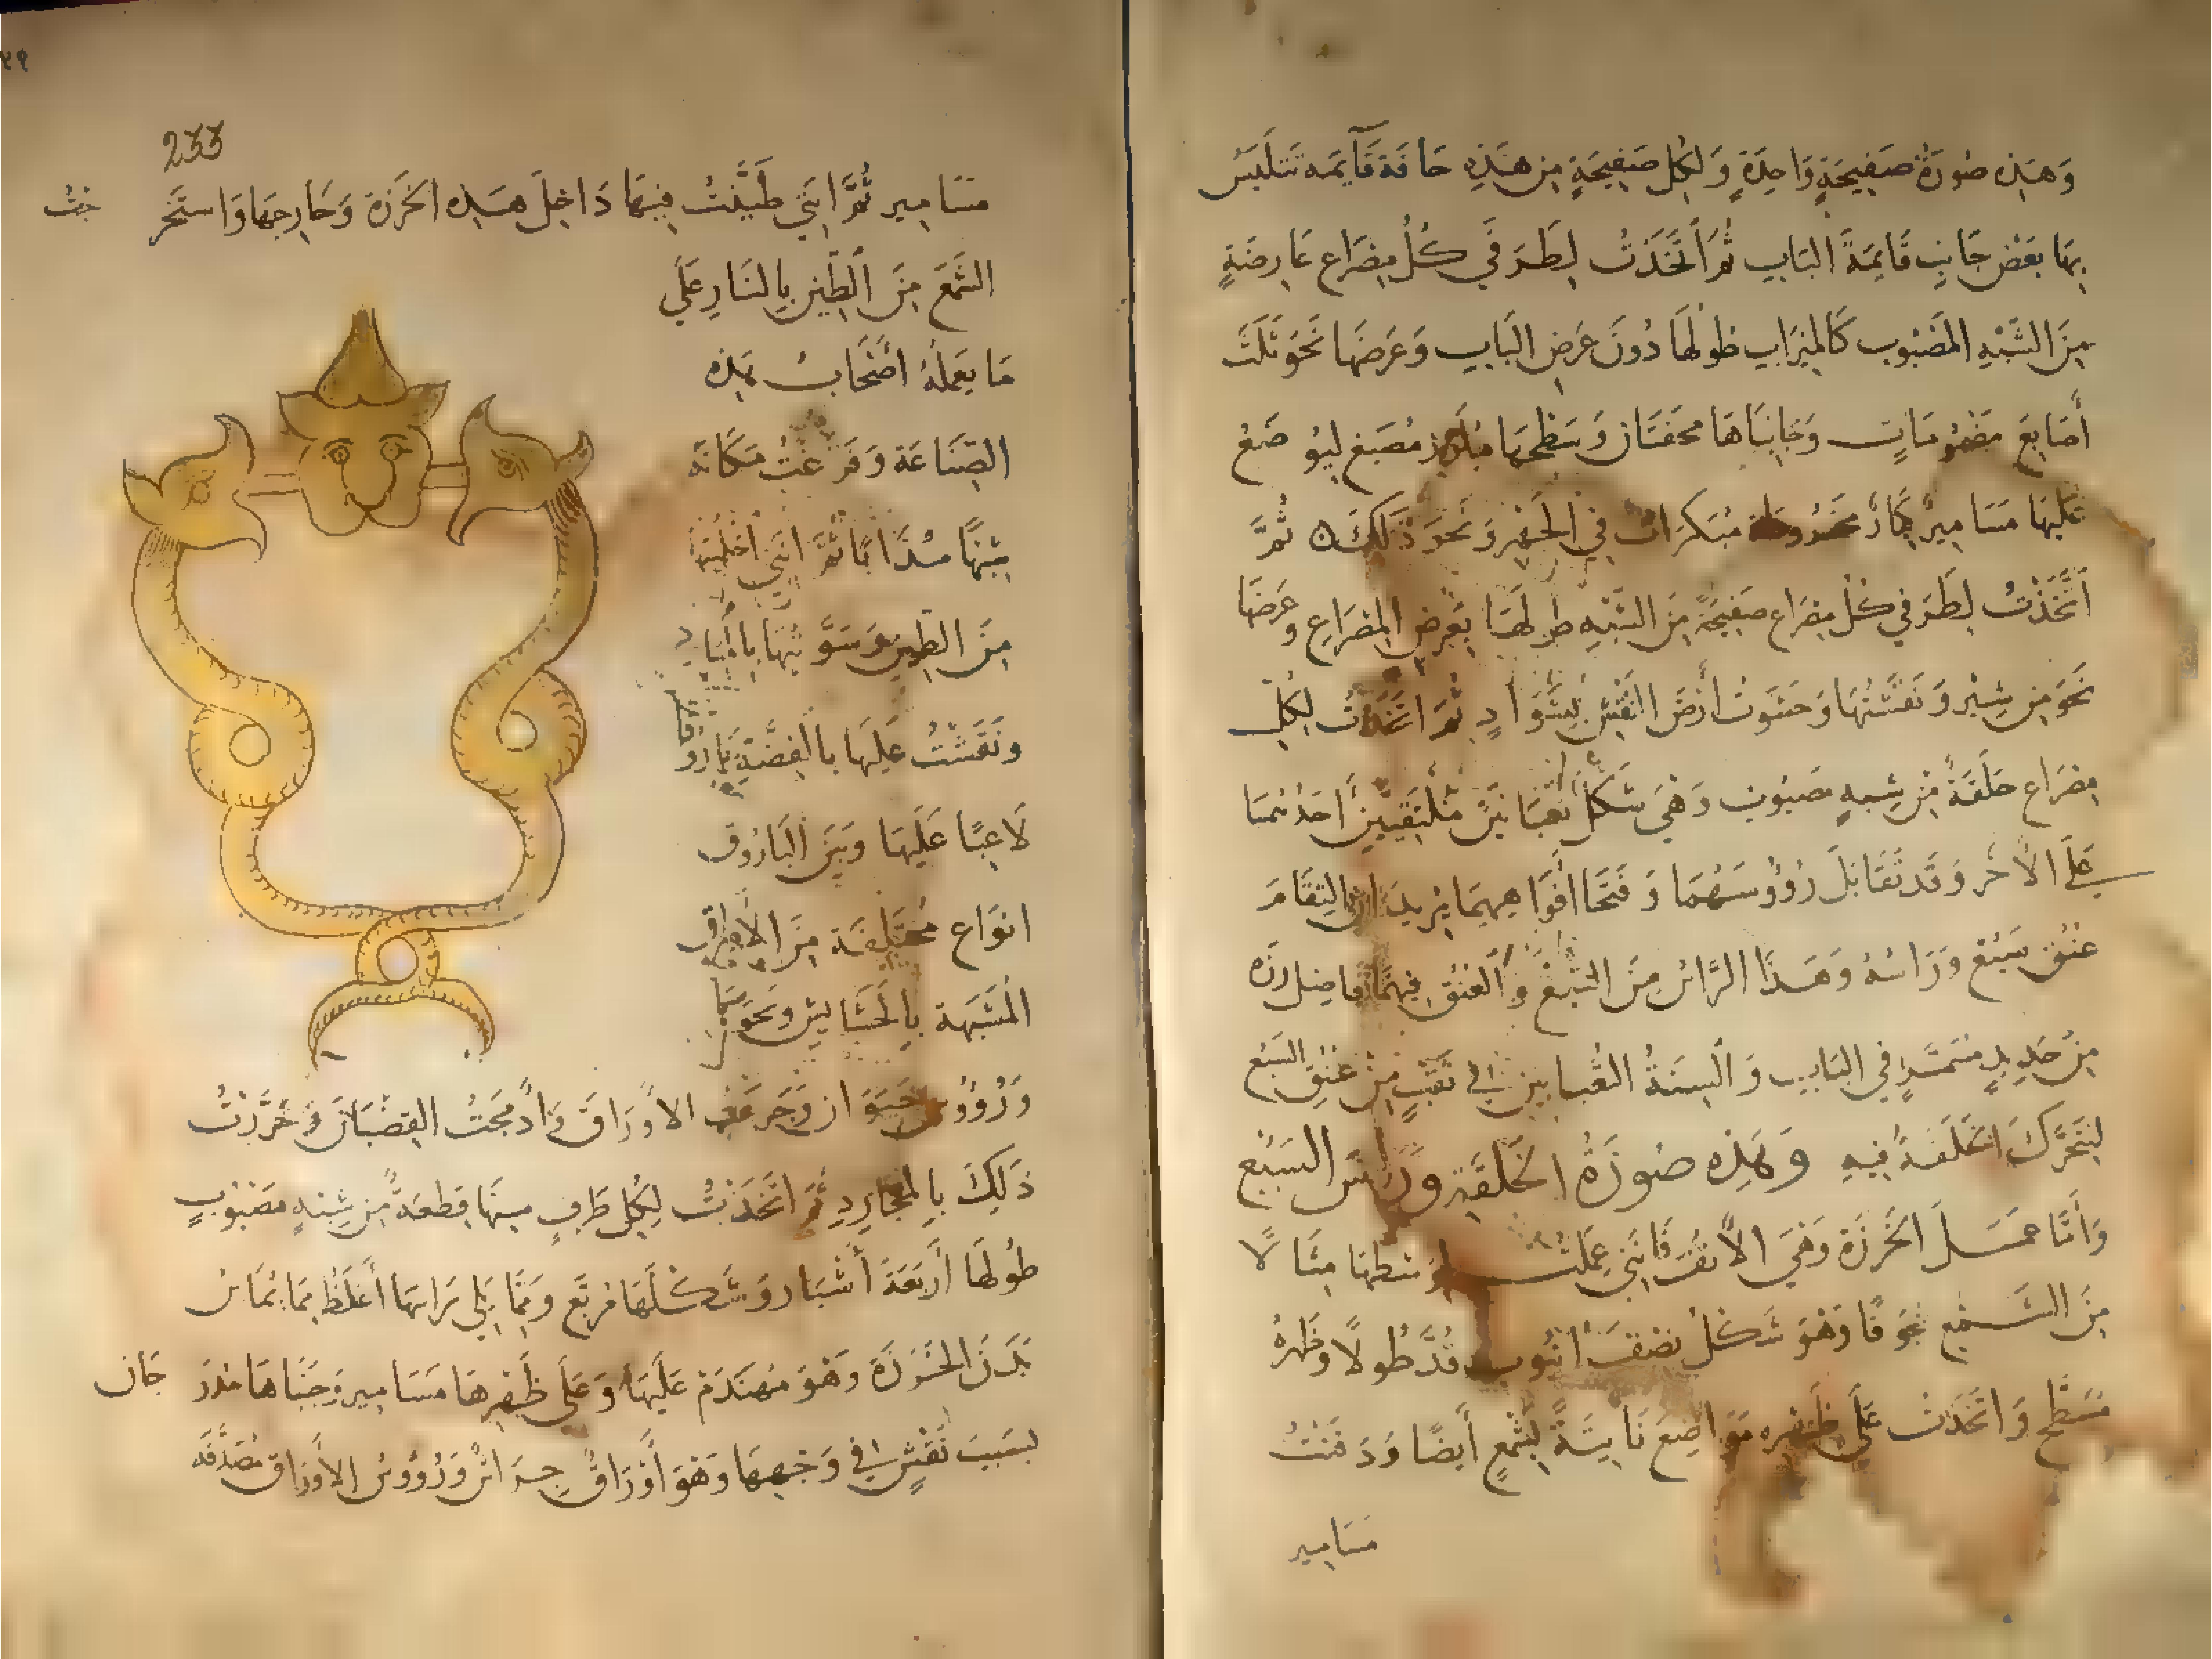 وَهَذِه صُورَةُ صَفِيحَةٍ وَاحِدَةٍ وَلِكُلِ صَفِيحَةٍ مِن هَذِهِ حَافَة قَايمَه تَتَلَبَسُ
بِهَا بَعْضَ جَانِب قَايِمَة البَابِ ثُمَ اَتَّخَذتُ لِطَرَفَي كُل مِصْرَاع عَارِضَةٍ
مِنَ الشَّبَهِ المَصْبُوب كَالمِيزَابِ طُولُهَا دُونَ عَرضِ البَابِ وَعَرضهَا نَحوَ ثَلَثَ
أَصَابِعَ مَضمُومَاتٍ وَجَانِبَاهَا محَفَتَان وَسَطحهَا
مَسَامِيرُ في الحَفرِ وَنَحوَ ذَلِكَ ثُمَّ
اَتَّخَذتُ لِطَرَفي كُل مِصرَاع صَفِيحَةً مِنَ الشَّبَهِ طولهَا بعَرضِ المِصرَاعِ وعَرضهَا
نَحوَ مِن شِبر وَنَقَشتُهَا وَحَشَوتُ أَرضَ النَقشِ بِسَوَادٍ ثمَ اتخَذتُ لِكُلِ
مِصرَاع حَلَقَةً مِن شِبهٍ مَصبُوب وَهيَ شَكلُ ثعبَانَين مُلتَقيَينِ أحَدُهمَا
عَلَى الأخَر وَقَد تَقَابَلَ رُؤُوسَهُمَا وَفَتَحَا أفوَاههِمَا يُريدَان التِقَامَ
عُنُق سَبُعْ وَرَاسُهُ وَهَذا الرَّاسُ مِنَ السَّبُعْ وَالعُنُق فِيهمَا فَاضِل رزَه
مِن حَدِيدٍ في البَابِ وَألسِنَةُ الثُعبَانَين في ثَقبٍ مِن عُنُقِ السَبُع
لِتَتَحَرَّكَ الحَلَقَةُ فِيهِ وَهَذِه صُورَةُ الحَلقَةِ وَرَاس السَبُع
وَأمَّا عَمَلَ الخَرَزَة وَهيَ الأنفُ فَانَني عَمِلتُ لوَسَطهَا مِثَالا
مِنَ الشَمعِ مُجَوَفًا وَهوَ شَكلُ نِصفَ انبُوب قُدَّ طُولًا وَظَهرهُ
مُسَطَّح وَاتَخَذتُ عَلَى ظَهرِه مَوَاضِعَ نَابِتَةً بشَمعٍ أيضًا وَدَفَنتُ
مسَامِير
٢٩
233
مسَامِير ثُمَّ انَني طَيَّنتُ فِيهَا دَاخِلَ هَذِه الخَرَزَة وَخَارِجهَا وَاستَخرَ
جتُ
الشَّمَعَ مِنَ الطِينِ بِالنَارِ عَلَى
مَا يَعمَلهُ أصحَابُ هَذِه
الصّنَاعَة وَفَرغتُ مَكَانَه
شَبَهًا مُذَابًا ثُمَّ انَني أخلَيتهَا
مِنَ الطِينِ وَسَوَّيتهَا بالمبَارِد
ونَقَشتُ عَلَيهَا بالفضَّةِ بَارُوقًا
لَاعِبًا عَلَيهَا وَبَيَن البَارُوق
انوَاع مُختَلِفَة مِنَ الأورَاق
المُشَبَهة بالحَشَايشِ وَنَحوهَا
وَرُؤُوس حَيَوَان وَجَرعتُ الأورَاق وَأدمَجتُ القضبَانَ وَحَرَّرتُ
ذَلِكَ بِالمَجَارِدِ ثُمَ اتَّخَذتُ لِكُل طَرفٍ مِنهَا قِطعَةً مِن شِبهٍ مَصبُوبٍ
طُولهَا أربَعَة أشبَار وَشَكلَهَا مُربَّع وَمِمَّا يَلي رَاسهَا أغلَظ مِمَا يُمَاسُ
بَدَنَ الخَرَزَة وَهُوَ مُهَندَم عَلَيهَا وَعَلى ظَهرِهَا مَسَامِير وَجَنبَاهَا مُدرَ
جَان
بسَبَبَ نَقشٍ في وَجهِهَا وَهوَ أورَاق وَرُؤُوسُ الأورَاق